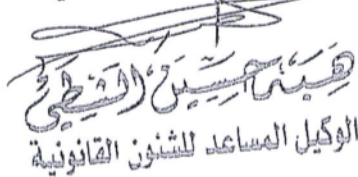 هبه حسين الشطي
الوكيل المساعد للشئون القانونية